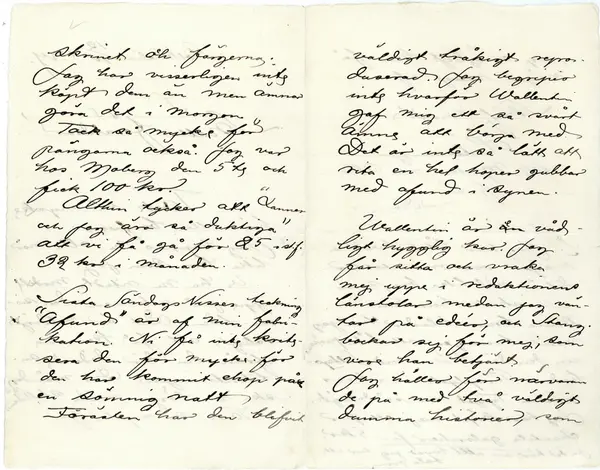 skrinet och färgerna.
Jag har visserligen inte
köpt dem än men ämnar
göra det i morgon.
Tack så mycke för
pängarna också. Jag var
hos Moberg den 5te och
fick 100 kr.
Althin tycker att "Lannes
och jag äro så duktiga"
att vi få gå för 25 i st. f.
39 kr i månaden.
Sista Söndags Nisses teckning
"Afund" är af min fabri-
kation. Ni få inte kriti-
sera den för mycke, för
den har kommit ihop på
en sömnig natt
Förresten har den blifvit
väldigt tråkigt repro-
ducerad. Jag begriper
inte hvarför Wallentin
gaf mig ett så svårt
ämne att börja med
Det är inte så lätt att
rita en hel hoper gubbar
med afund i synen.
Wallentin är en väd-
ligt hygglig karl. Jag
får sitta och vraka
mej uppe i redaktionens
länstolar medan jag vän-
tar på idéer, och Stang.
bockar sig för mej, som
vore han betjänt
Jag håller för närvaran
de på med två väldigt
dumma historier, som